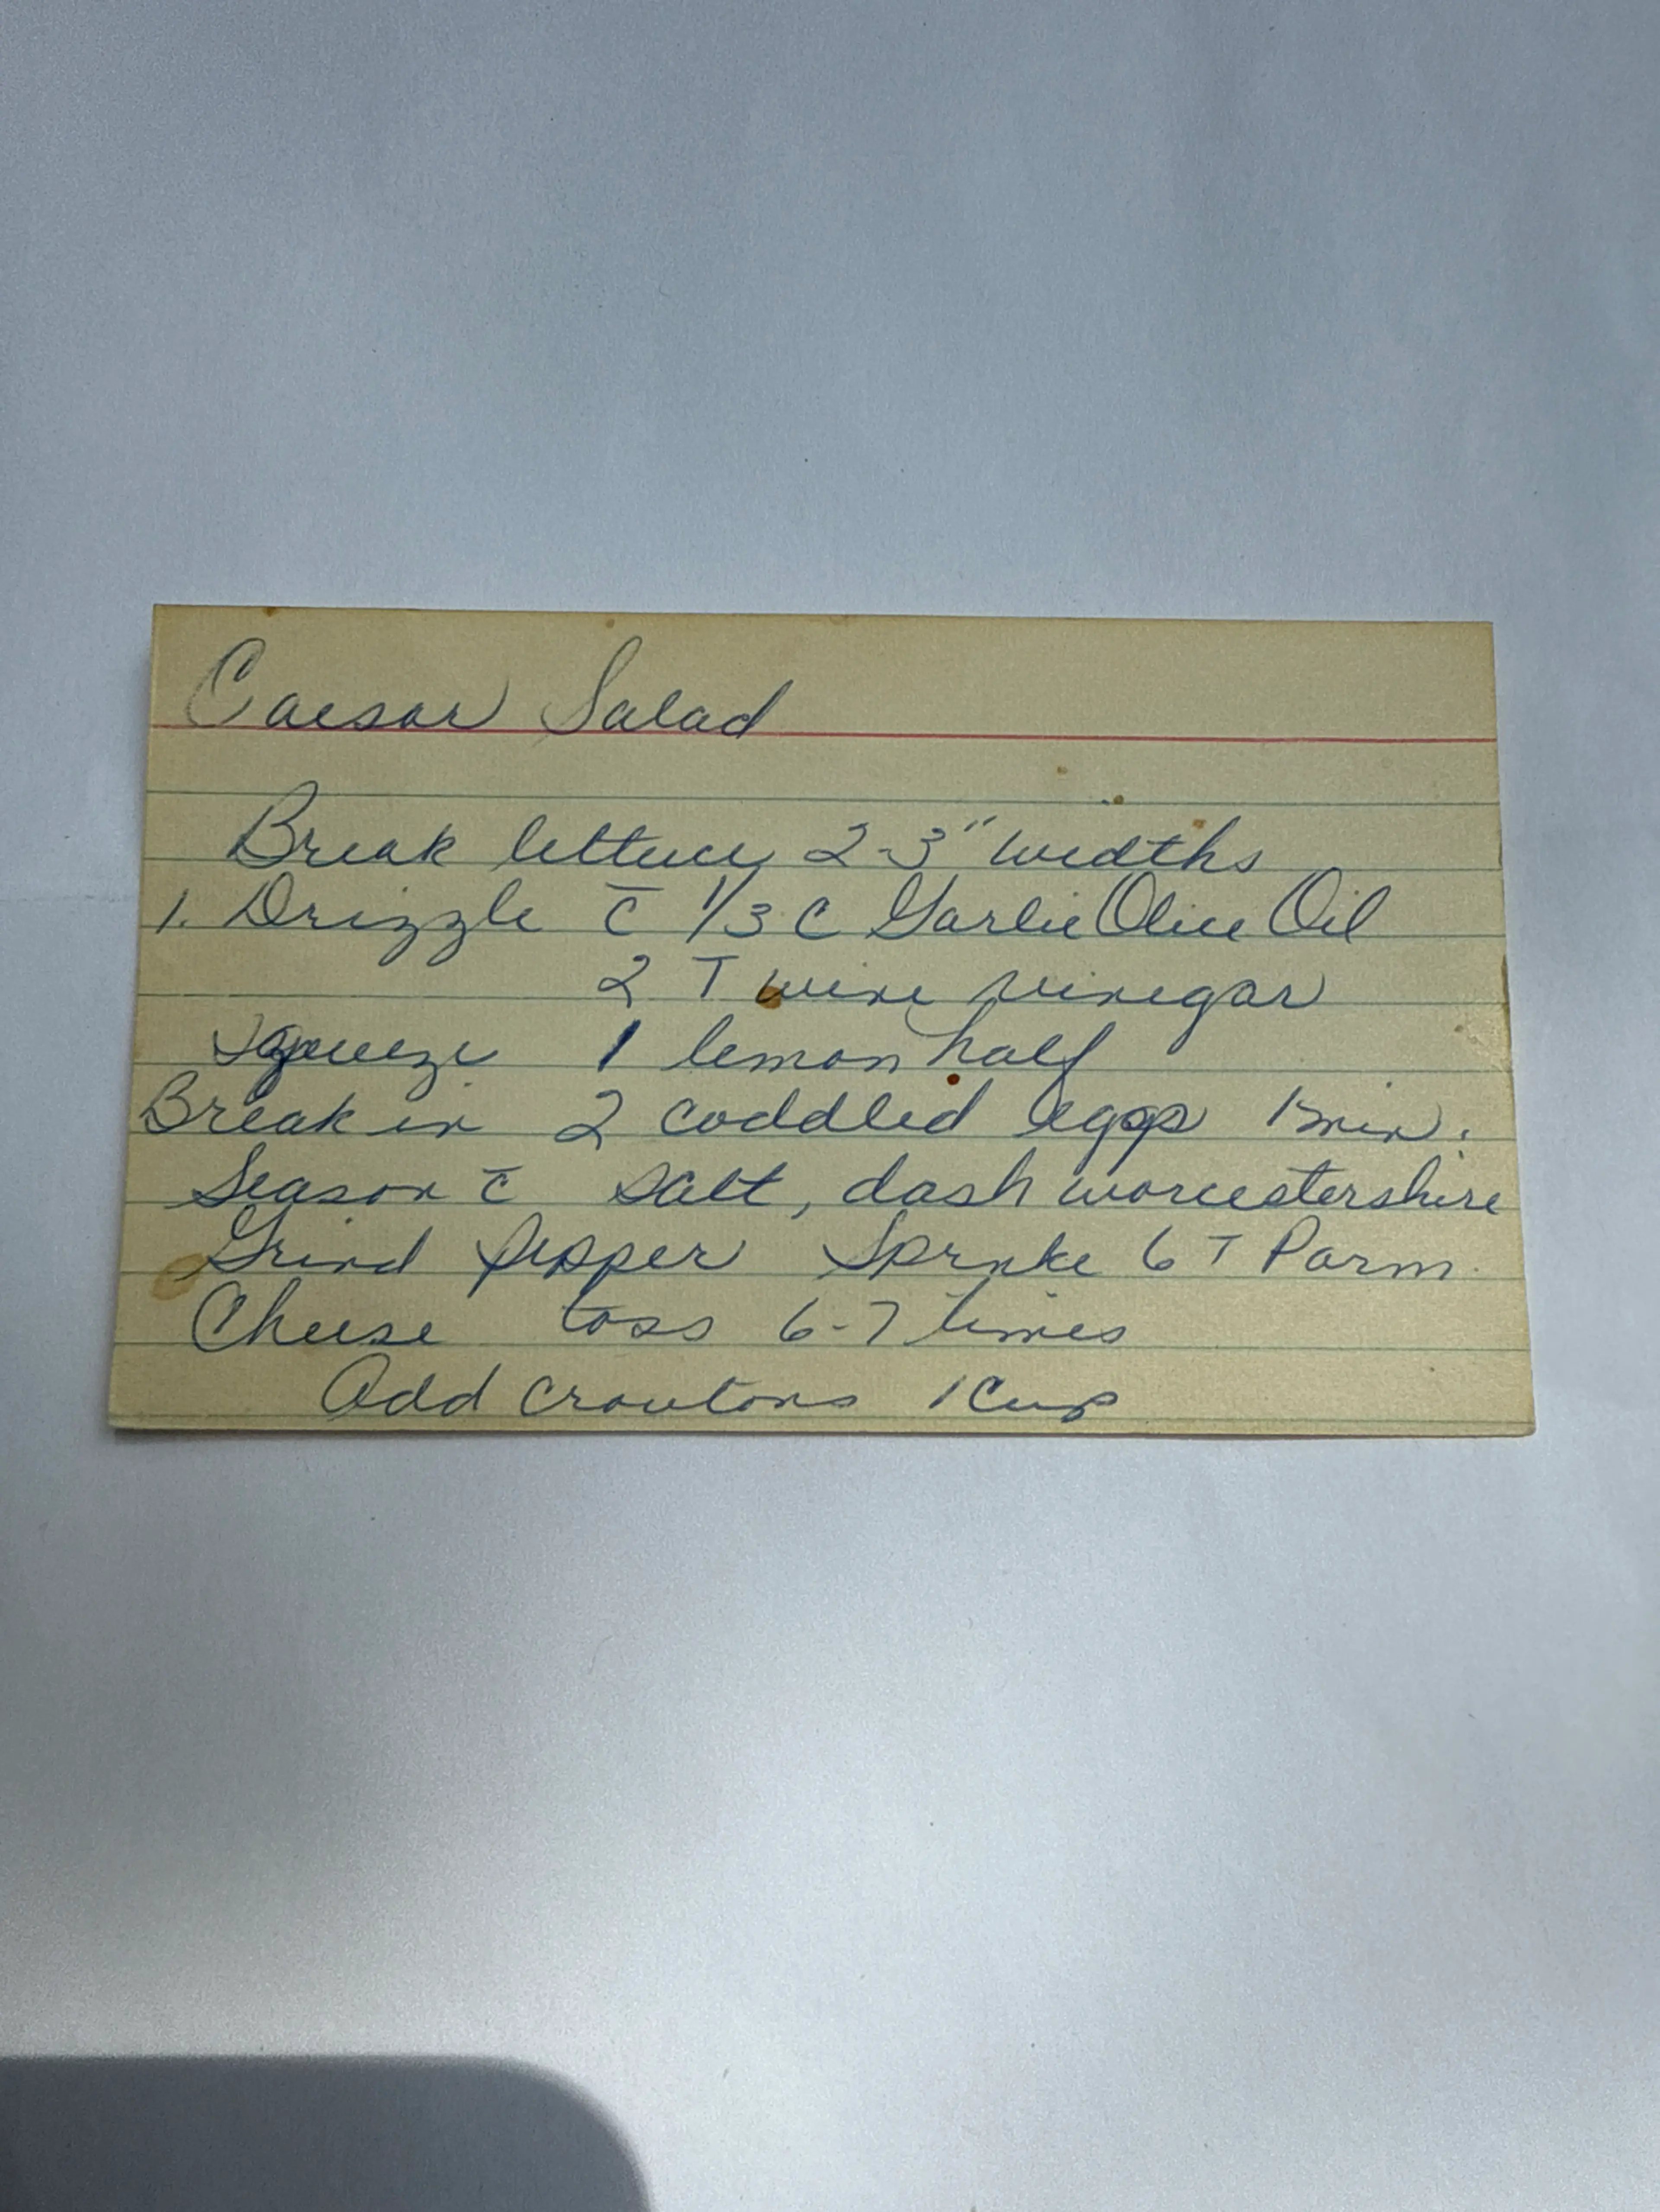 Caesar Salad
Break lettuce 2-3" widths
1. Drizzle c̄ 1/3 C Garlic Olive Oil
2 T wine vinegar
Squeeze 1 lemon half
Break in 2 coddled eggs 1 min.
Season c̄ salt, dash worcestershire
Grind Pepper Sprnke 6 T Parm.
Cheese toss 6-7 times
Add croutons 1 Cup